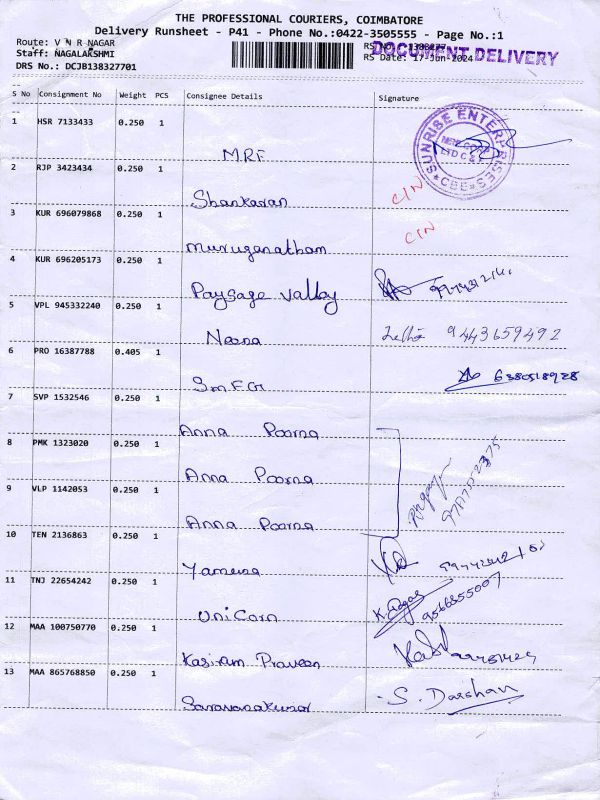 THE PROFESSIONAL COURIERS, COIMBATORE
Delivery Runsheet - P41 - Phone No.:0422-3505555 - Page No.:1
Route: V N R NAGAR
Staff: NAGALAKSHMI
DRS No.: DCJB138327701
RS No.: 1308277
RS Date: 17-Jun-2024
DOCUMENT DELIVERY
S No Consignment No Weight PCS Consignee Details Signature
1 HSR 7133433 0.250 1 MRF
SUNRISE ENTERPRISES
CBE
2 RJP 3423434 0.250 1 Shankaran C/N
3 KUR 696079868 0.250 1 Muruganatham C/N
4 KUR 696205173 0.250 1 Paysage Valley
5 VPL 945332240 0.250 1 Neena 9443659492
6 PRO 16387788 0.405 1 SMFG 6380518928
7 SVP 1532546 0.250 1 Anna Poorna
8 PMK 1323020 0.250 1 Anna Poorna
9 VLP 1142053 0.250 1 Anna Poorna
10 TEN 2136863 0.250 1 Yamuna
11 TNJ 22654242 0.250 1 UniCorn 9566855007
12 MAA 100750770 0.250 1 Kasiram Praveen
13 MAA 865768850 0.250 1 Saravanakumar S. Darshan